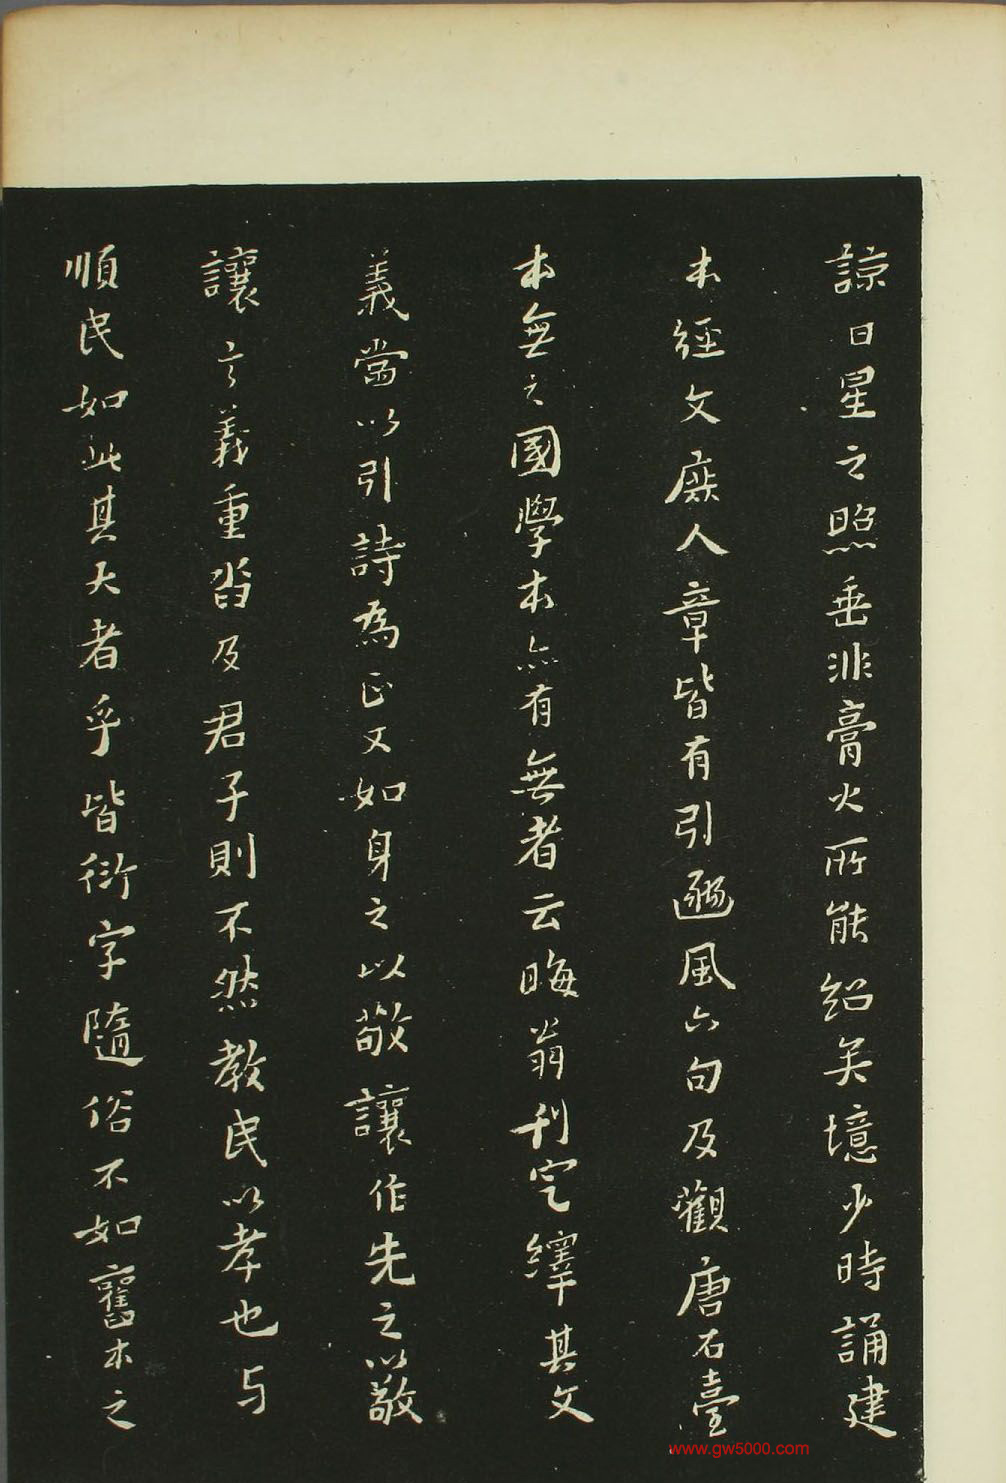 諒日星之照垂非膏火所能紹矣境少時誦建
本經文庶人章皆有引豳風六句及觀唐石臺
本無之國學本亦有無者云晦翁刊定繹其文
義當以引詩為正文如身之以敬讓作先之以敬
讓言義重沓及君子則不然教民以孝也与
順民如此其大者乎皆衍字隨俗不如舊本之
www.gw5000.com